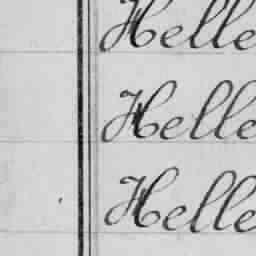 Helle
Helle
Helle